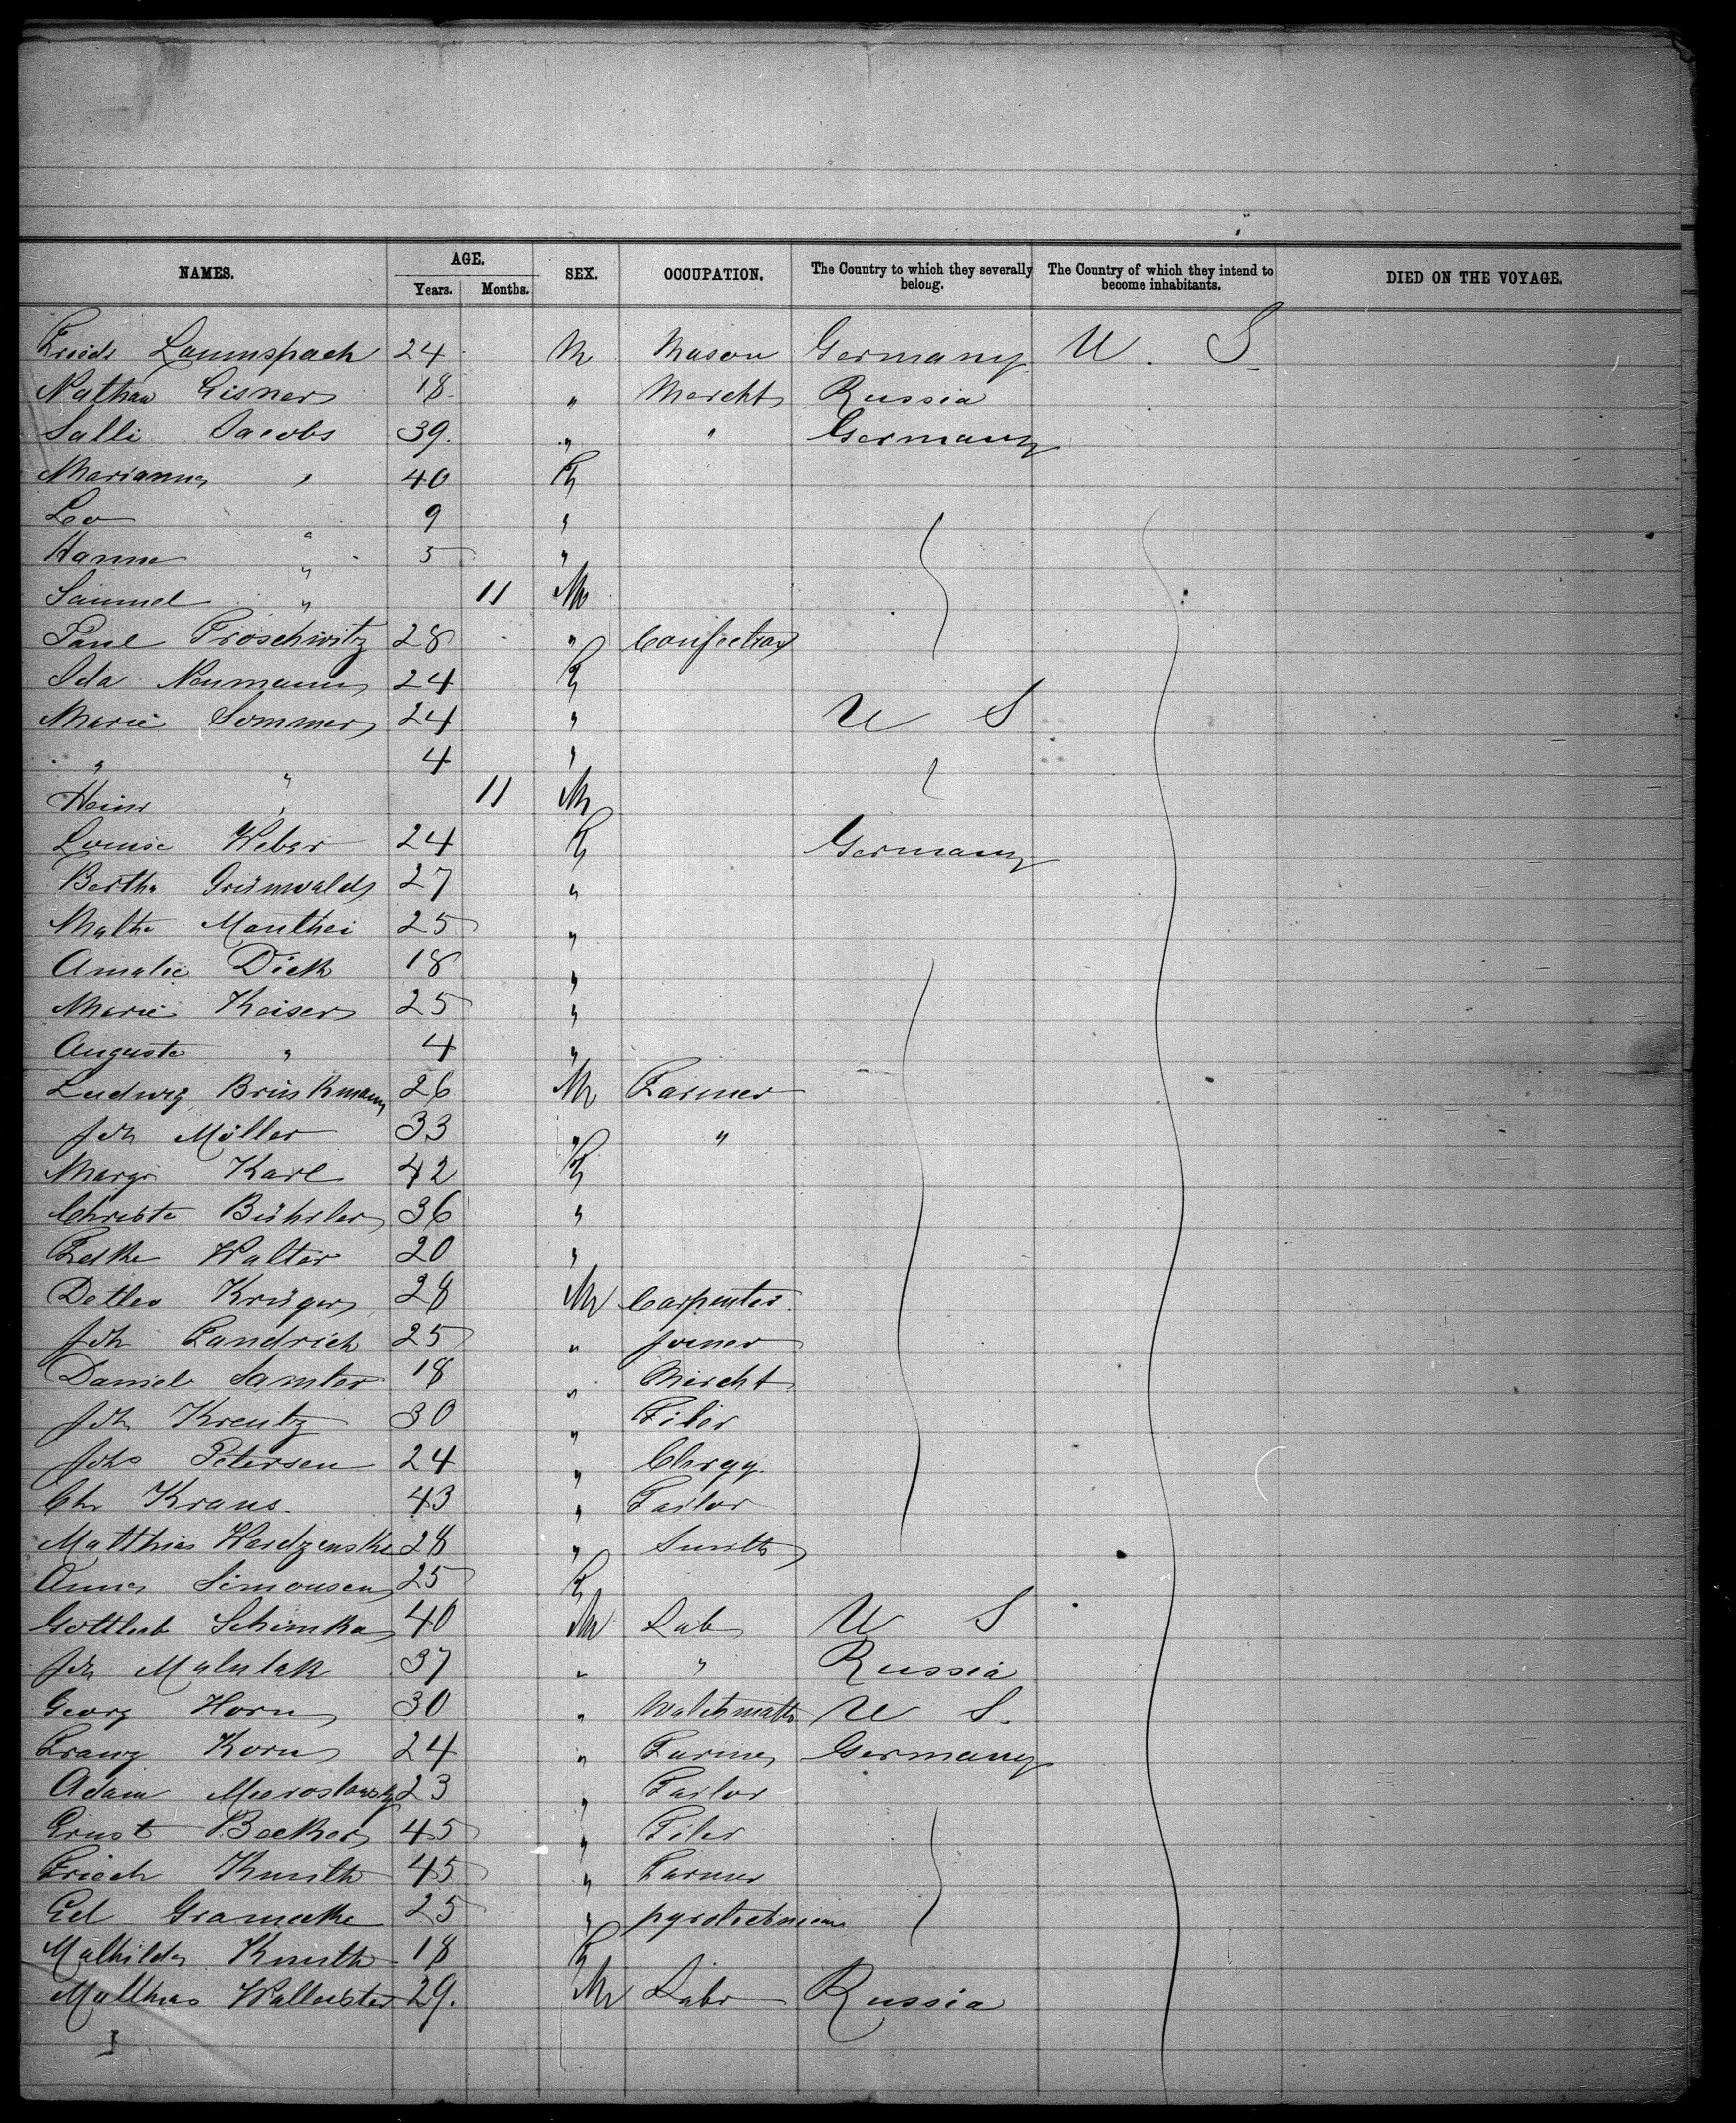 NAMES. AGE. SEX. OCCUPATION. The Country to which they severally belong. The Country of which they intend to become inhabitants. DIED ON THE VOYAGE.
Years. Months.
Friedr 24 M Mason Germany U. S.
Nathan Eisner 18 " Mercht Russia
Salli Jacobs 39. " " Germany
Marianne " 40 F
Leo " 9 "
Hanne " 5 "
Samuel " 11 M
Paul Troschwitz 28 " Confection
Ida Neumann 24 F
Marie Sommer 24 " U S
" " 4 "
Heinr " 11 M
Louise Weber 24 F Germany
Bertha Grünwald 27 "
Manthei 25 "
Amalie Dick 18 "
Marie Keiser 25 "
Auguste " 4 "
Ludwig Brinkmann 26 M Farmer
Joh Möller 33 " "
Margr Karl 42 F
Christe Bührler 36 "
Walter 20 "
Detlev Krüger 28 M Carpenter.
Joh Fandrich 25 " Joiner
Daniel Samter 18 " Mercht
Joh Kreutz 30 "
Johs Petersen 24 " Clergy.
Chr Kraus. 43 " Tailor
Matthias 28 " Smith
Anna Simonsen 25 F
Gottlieb Schimka 40 M Lab U S
Joh Malulak 37 " " Russia
Georg Horn 30 " U S.
Franz Korn 24 " Farmer Germany
Adam 23 " Tailor
Ernst Becker 45 "
Friedr 45 " Farmer
Ed Gramcke 25 "
Mathilde Knuth 18 F
Matthias 29. M Labr Russia